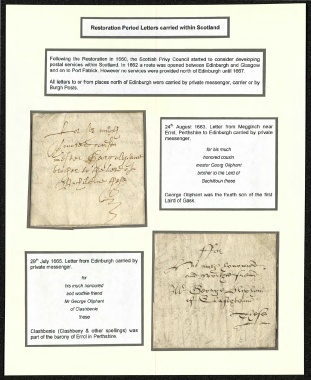 Restoration Period Letters carried within Scotland
Following the Restoration in 1660, the Scottish Privy Council started to consider developing
postal services within Scotland. In 1662 a route was opened between Edinburgh and Glasgow
and on to Port Patrick. However no services were provided north of Edinburgh until 1667.
All letters to or from places north of Edinburgh were carried by private messenger, carrier or by
Burgh Posts.
For his much
honored cousin
master George Oliphant
brother to the Lord of
24th August 1663. Letter from Megginch near
Errol, Perthshire to Edinburgh carried by private
messenger.
for his much
honored cousin
master Georg Oliphant
brother to the Lord of
these
George Oliphant was the fourth son of the first
Laird of Gask.
29th July 1665. Letter from Edinburgh carried by
private messenger.
for
his much honoured
and worthie friend
Mr George Oliphant
of Clashbenie
these
Clashbenie (Clashbeny & other spellings) was
part of the barony of Errol in Perthshire.
For
his much honoured
and worthie friend
Mr George Oliphant
of
These